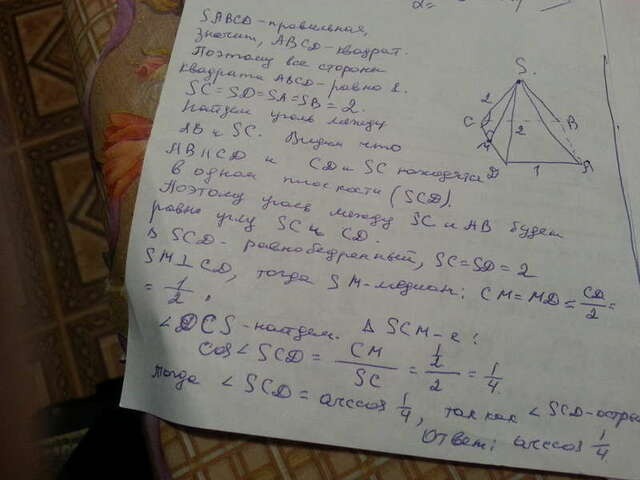 SABCD - правильная,
значит, ABCD - квадрат.
Поэтому все стороны
квадрата ABCD - равно 1.
SC = SD = SA = SB = 2.
Найдем угол между
AB и SC. Видим что
AB || CD и CD и SC находятся
в одной плоскости (SCD).
Поэтому угол между SC и AB будет
равно углу SC и CD.
Δ SCD - равнобедренный, SC = SD = 2
SM ⊥ CD, тогда SM - медиан: CM = MD = CD/2 =
= 1/2;
∠DCS - найдем. Δ SCM - е:
cos∠SCD = CM/SC = 1/2/2 = 1/4
тогда ∠SCD = arccos 1/4, так как ∠SCD - остр
Ответ: arccos 1/4
S.
2
C
B
M
2
D
1